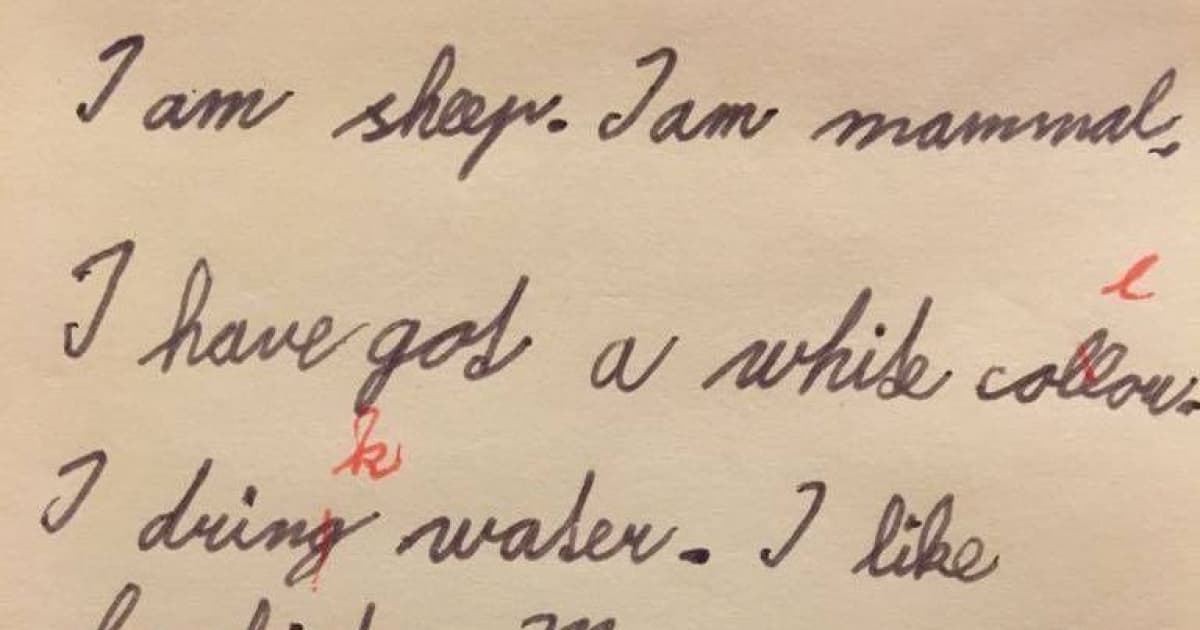 I am sheep. I am mammal.
l
I have got a white collour.
k
I dring water. I like